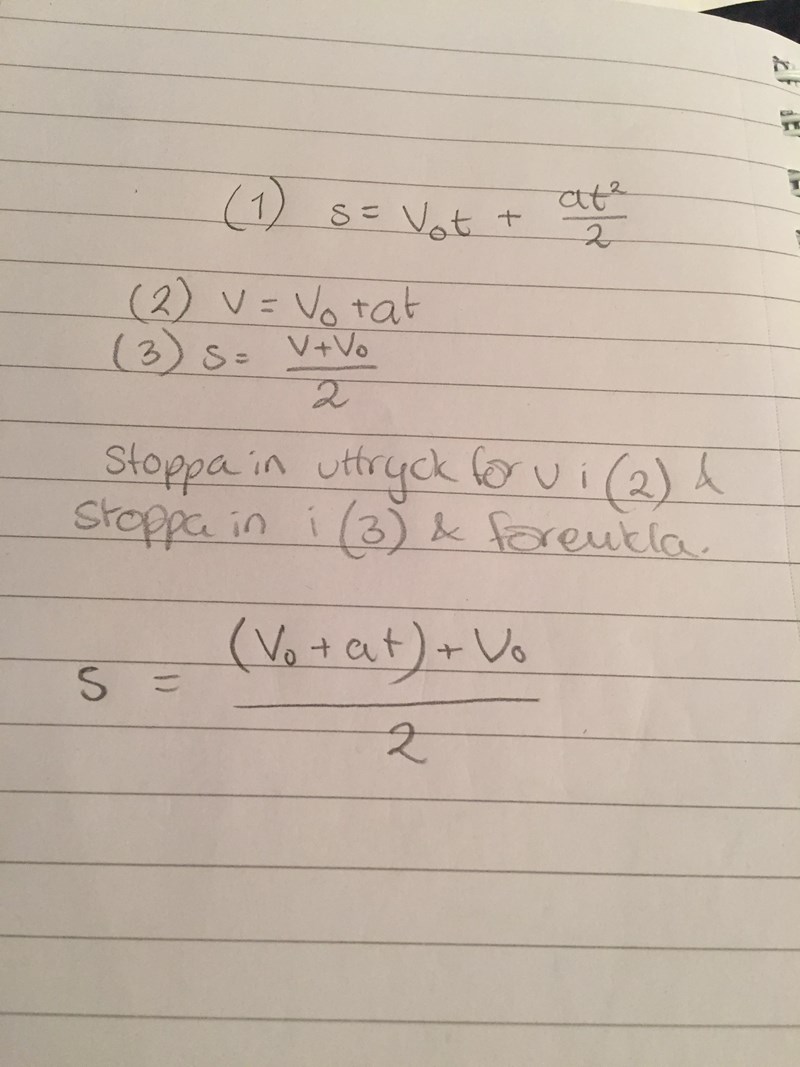 (1) s = V₀t + at²/2
(2) V = V₀ + at
(3) s = V+V₀/2
Stoppa in uttryck for v i (2) &
stoppa in i (3) & forenkla.
s = (V₀ + at) + V₀/2